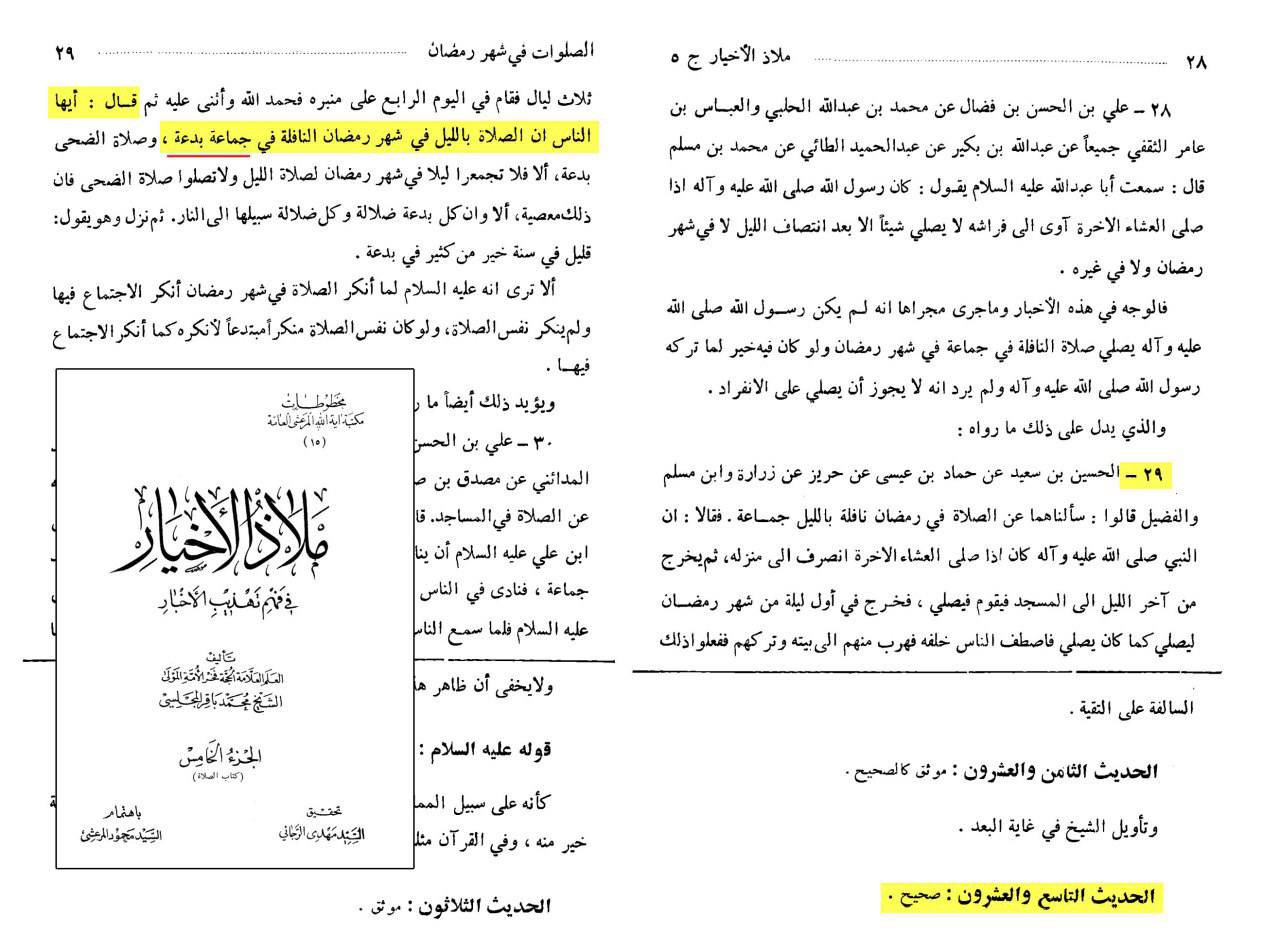 ٢٨ ملاذ الأخيار ج ٥
٢٨ ــ علي بن الحسن بن فضال عن محمد بن عبدالله الحلبي والعباس بن
عامر الثقفي جميعاً عن عبدالله بن بكير عن عبدالحميد الطائي عن محمد بن مسلم
قال : سمعت أبا عبدالله عليه السلام يقول : كان رسول الله صلى الله عليه وآله اذا
صلى العشاء الاخرة آوى الى فراشه لا يصلي شيئاً الا بعد انتصاف الليل لا في شهر
رمضان ولا في غيره .
فالوجه في هذه الأخبار وماجرى مجراها انه لـم يكن رسـول الله صلى الله
عليه وآله يصلي صلاة النافلة في جماعة في شهر رمضان ولو كان فيه خير لما تركه
رسول الله صلى الله عليه وآله ولم يرد انه لا يجوز أن يصلي على الانفراد .
والذي يدل على ذلك ما رواه :
٢٩ ــ الحسين بن سعيد عن حماد بن عيسى عن حريز عن زرارة وابن مسلم
والفضيل قالوا : سألناهما عن الصلاة في رمضان نافلة بالليل جمـاعة . فقالا : ان
النبي صلى الله عليه وآله كان اذا صلى العشاء الاخرة انصرف الى منزله، ثم يخرج
من آخر الليل الى المسجد فيقوم فيصلي ، فخرج في أول ليلة من شهر رمضـان
ليصلي كما كان يصلي فاصطف الناس خلفه فهرب منهم الى بيته وتركهم ففعلوا ذلك
السالفة على التقية .
الحديث الثامن والعشرون : موثق كالصحيح .
وتأويل الشيخ في غاية البعد .
الحديث التاسع والعشرون : صحيح .
الصلوات في شهر رمضان ٢٩
ثلاث ليال فقام في اليوم الرابع على منبره فحمد الله وأثنى عليه ثم قـال : أيها
الناس ان الصلاة بالليل في شهر رمضان النافلة في جماعة بدعة ، وصلاة الضحى
بدعة، ألا فلا تجمعوا ليلا في شهر رمضان لصلاة الليل ولاتصلوا صلاة الضحى فان
ذلك معصية، ألا وان كل بدعة ضلالة وكل ضلالة سبيلها الى النار. ثم نزل وهو يقول:
قليل في سنة خير من كثير في بدعة .
ألا ترى انه عليه السلام لما أنكر الصلاة في شهر رمضان أنكر الاجتماع فيها
ولم ينكر نفس الصلاة، ولو كان نفس الصلاة منكراً مبتدعاً لأنكره كما أنكر الاجتماع
فيهـا .
ويؤيد ذلك أيضاً ما ر
٣٠ ــ علي بن الحسن
المدائني عن مصدق بن ص
عن الصلاة في المساجد. قا
ابن علي عليه السلام أن ينا
جماعة ، فنادى في الناس
عليه السلام فلما سمع الناس
ولايخفى أن ظاهر هذ
قوله عليه السلام :
كأنه على سبيل المما
خير منه ، وفي القرآن مثل
الحديث الثلاثون : موثق .
مخطوطات
مكتبة آية الله المرعشي العامة
(١٥)
ملاذ الأخيار
في فهم تهذيب الأخبار
تأليف
العلم العلامة الحجة فخر الأمة المولى
الشيخ محمد باقر المجلسي
الجزء الخامس
(كتاب الصلاة)
تحقيق
السيد مهدي الرجائي
باهتمام
السيد محمود المرعشي